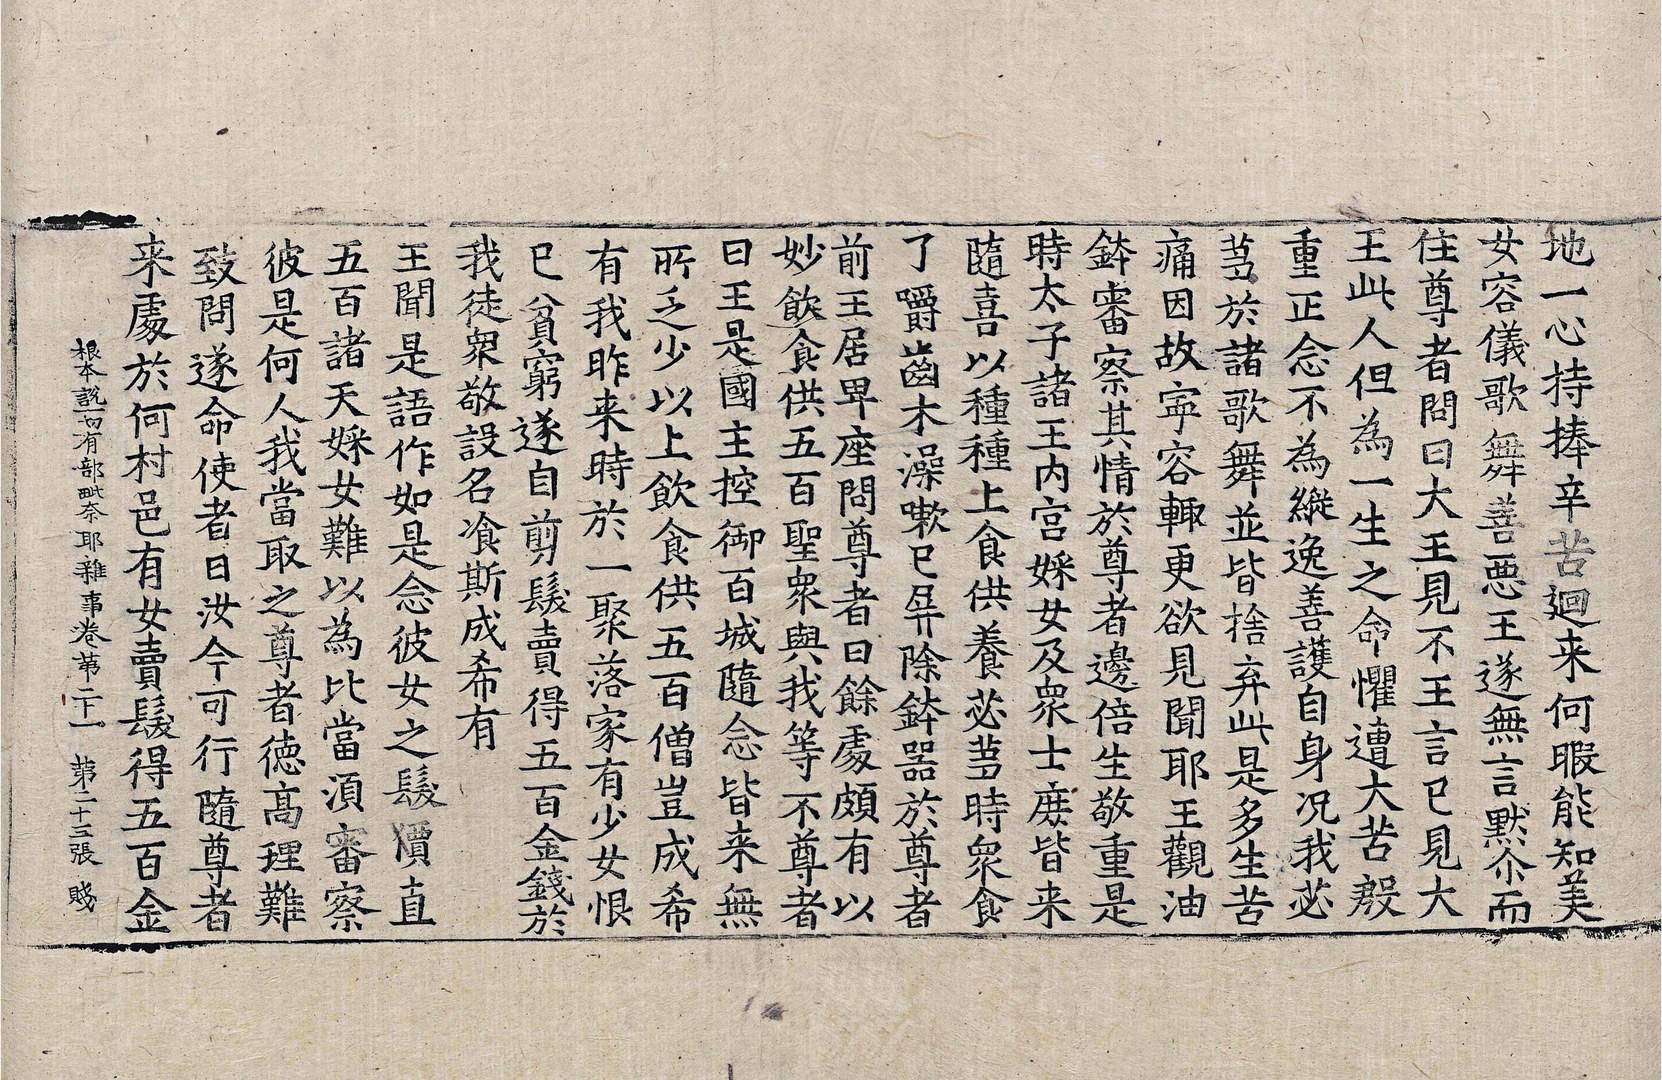 地一心持捧辛苦迴来何暇能知美
女容儀歌舞善悪王遂無言黙尒而
住尊者問曰大王見不王言已見大
王此人但為一生之命懼遭大苦殷
重正念不為縱逸善護自身况我苾
蒭於諸歌舞並皆捨弃此是多生苦
痛因故寧容輙更欲見聞耶王觀油
鉢審察其情於尊者邊倍生敬重是
時太子諸王内宫婇女及衆士庶皆来
隨喜以種種上食供養苾蒭時衆食
了嚼齒木澡嗽已屏除鉢器於尊者
前王居卑座問尊者曰餘處頗有以
妙飲食供五百聖衆與我等不尊者
曰王是國主控御百城隨念皆来無
所乏少以上飲食供五百僧豈成希
有我昨来時於一聚落家有少女恨
已貧窮遂自剪髮賣得五百金錢於
我徒衆敬設名飡斯成希有
王聞是語作如是念彼女之髮價直
五百諸天婇女難以為比當湏審察
彼是何人我當取之尊者徳髙理難
致問遂命使者曰汝今可行隨尊者
来處於何村邑有女賣髮得五百金
根本說一切有部毗奈耶雜事卷苐二十一 苐二十三張 賤